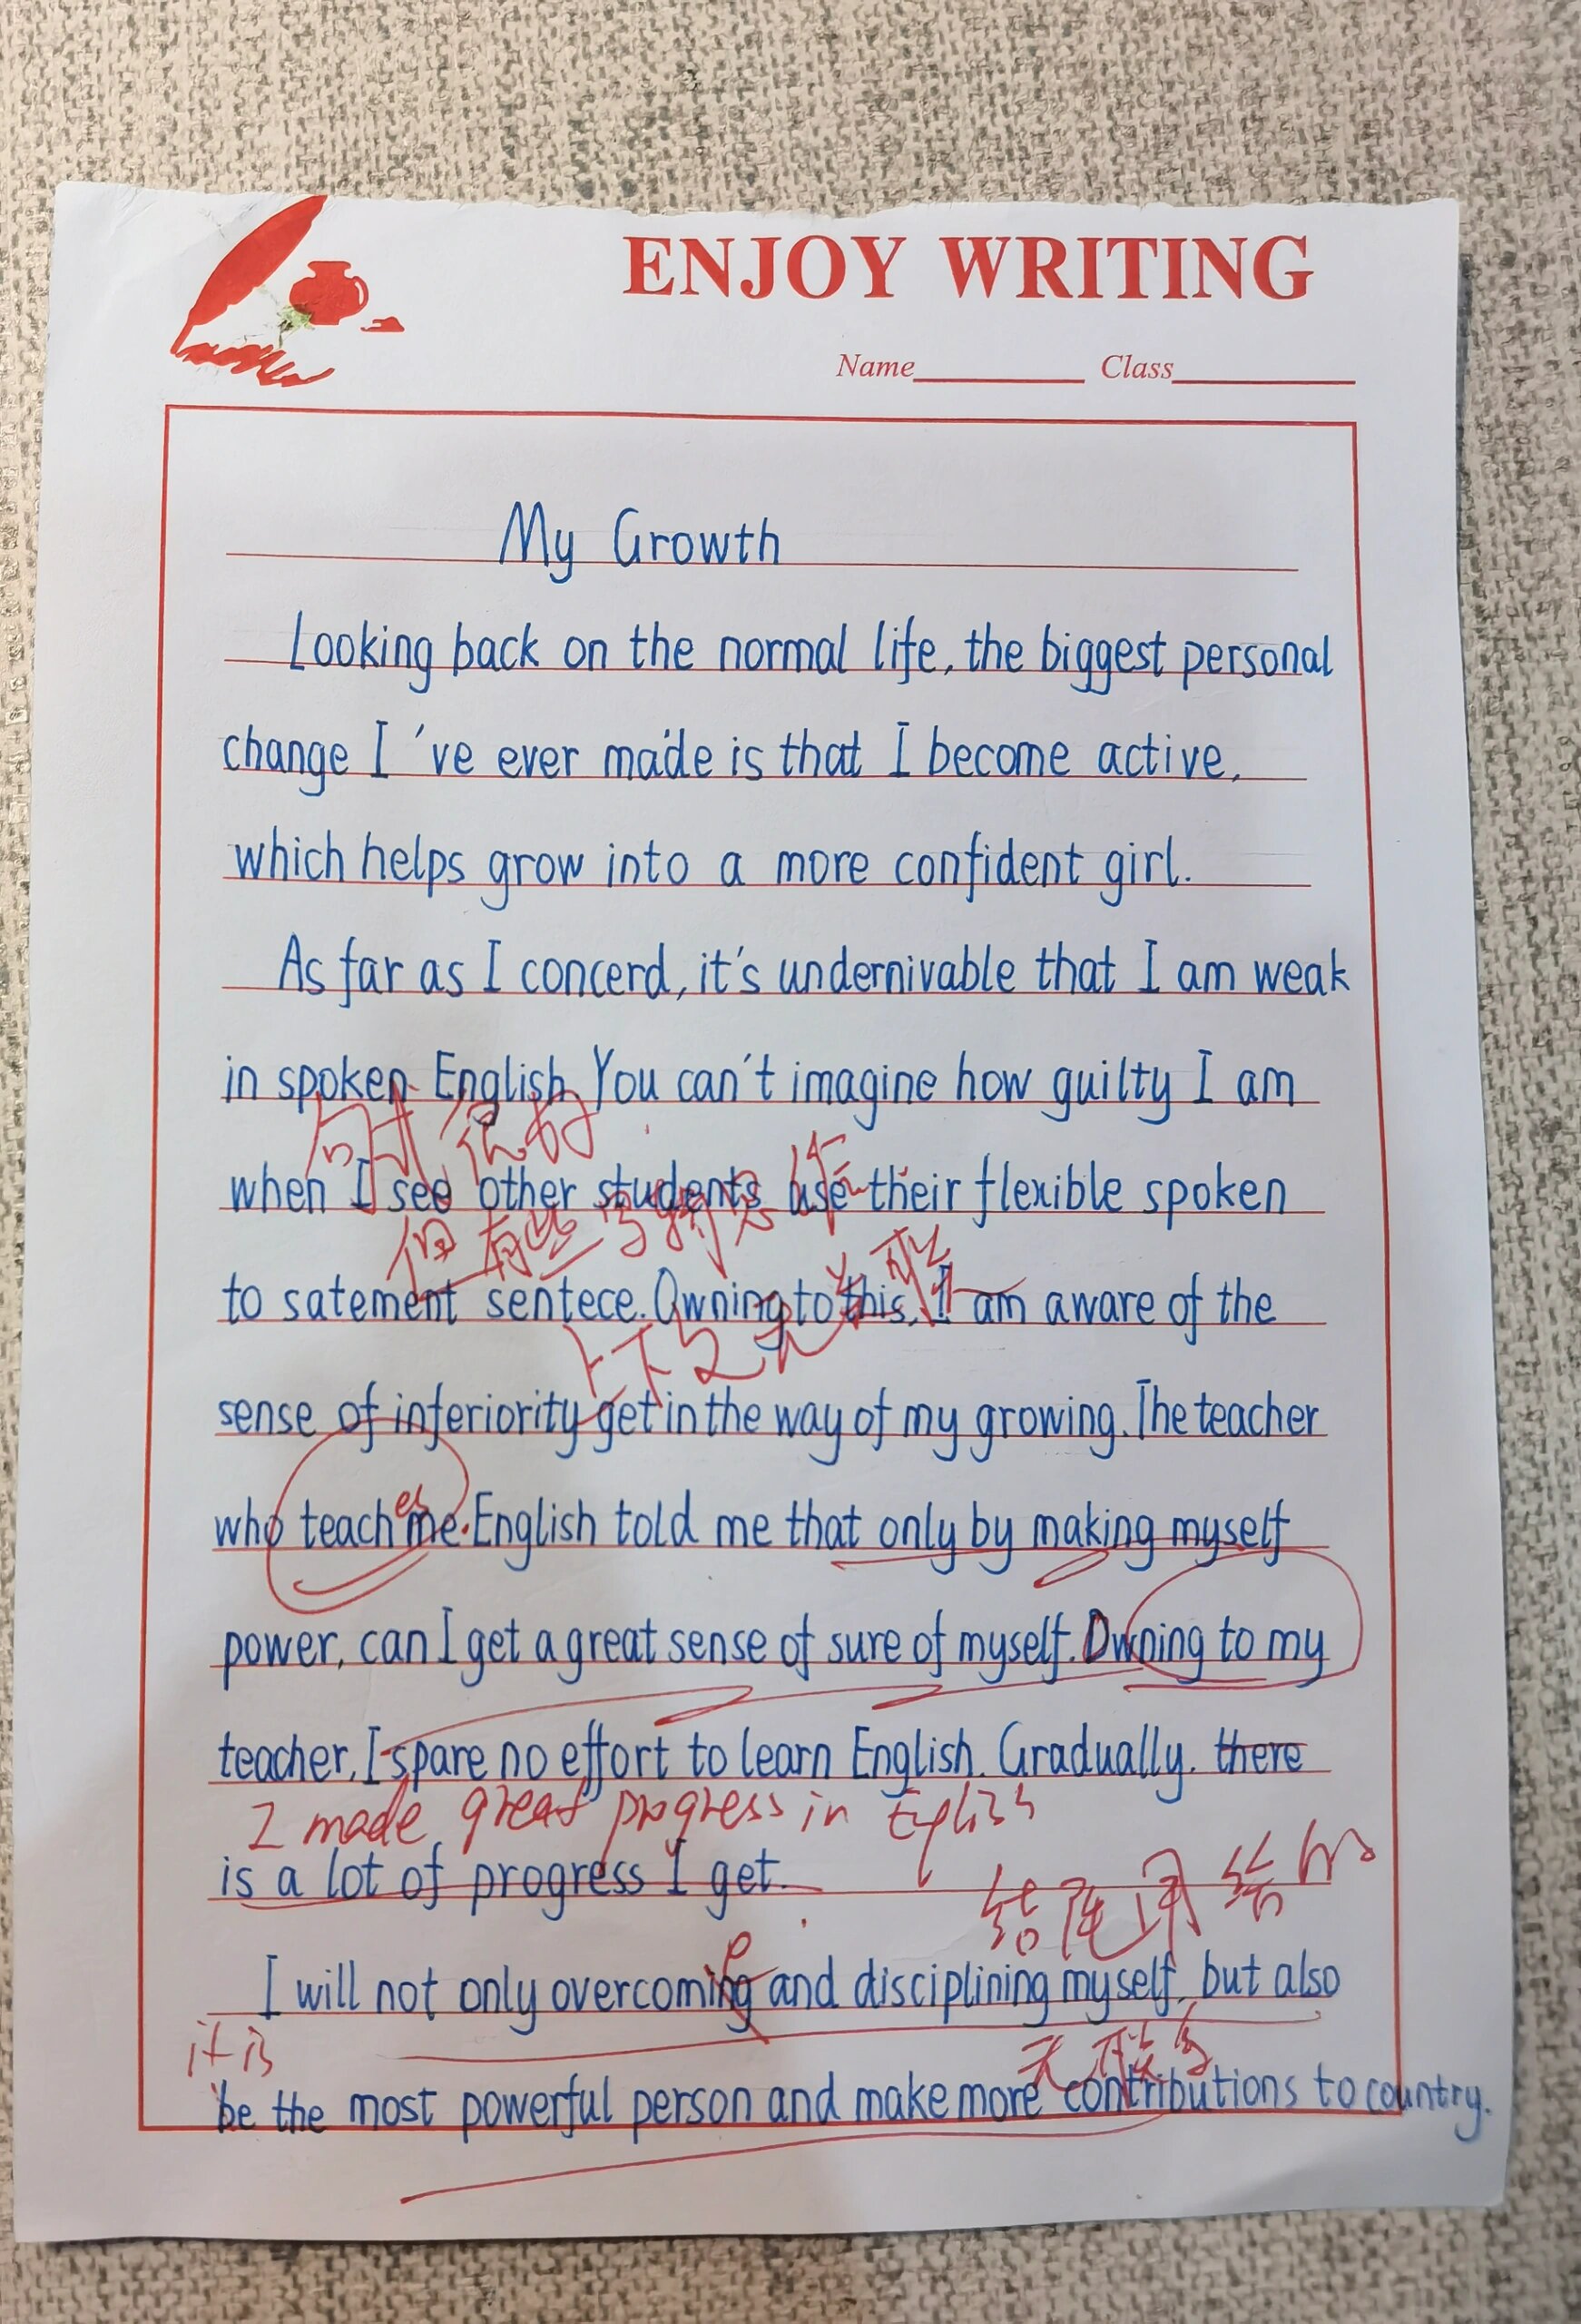 ENJOY WRITING
Name Class
My Growth
Looking back on the normal life, the biggest personal
change I 've ever made is that I become active,
which helps grow into a more confident girl.
As far as I concerd, it's undernivable that I am weak
in spoken English You can't imagine how guilty I am
句式很好
when I see other students use their flexible spoken
但有些
to satement sentece. Owning to this, I am aware of the
上下文
sense of inferiority get in the way of my growing. The teacher
es
who teach me English told me that only by making myself
power, can I get a great sense of sure of myself. Owning to my
teacher, I spare no effort to learn English. Gradually, there
I made great progress in English
is a lot of progress I get.
结尾
e
I will not only overcoming and disciplining myself, but also
be the most powerful person and make more contributions to country.